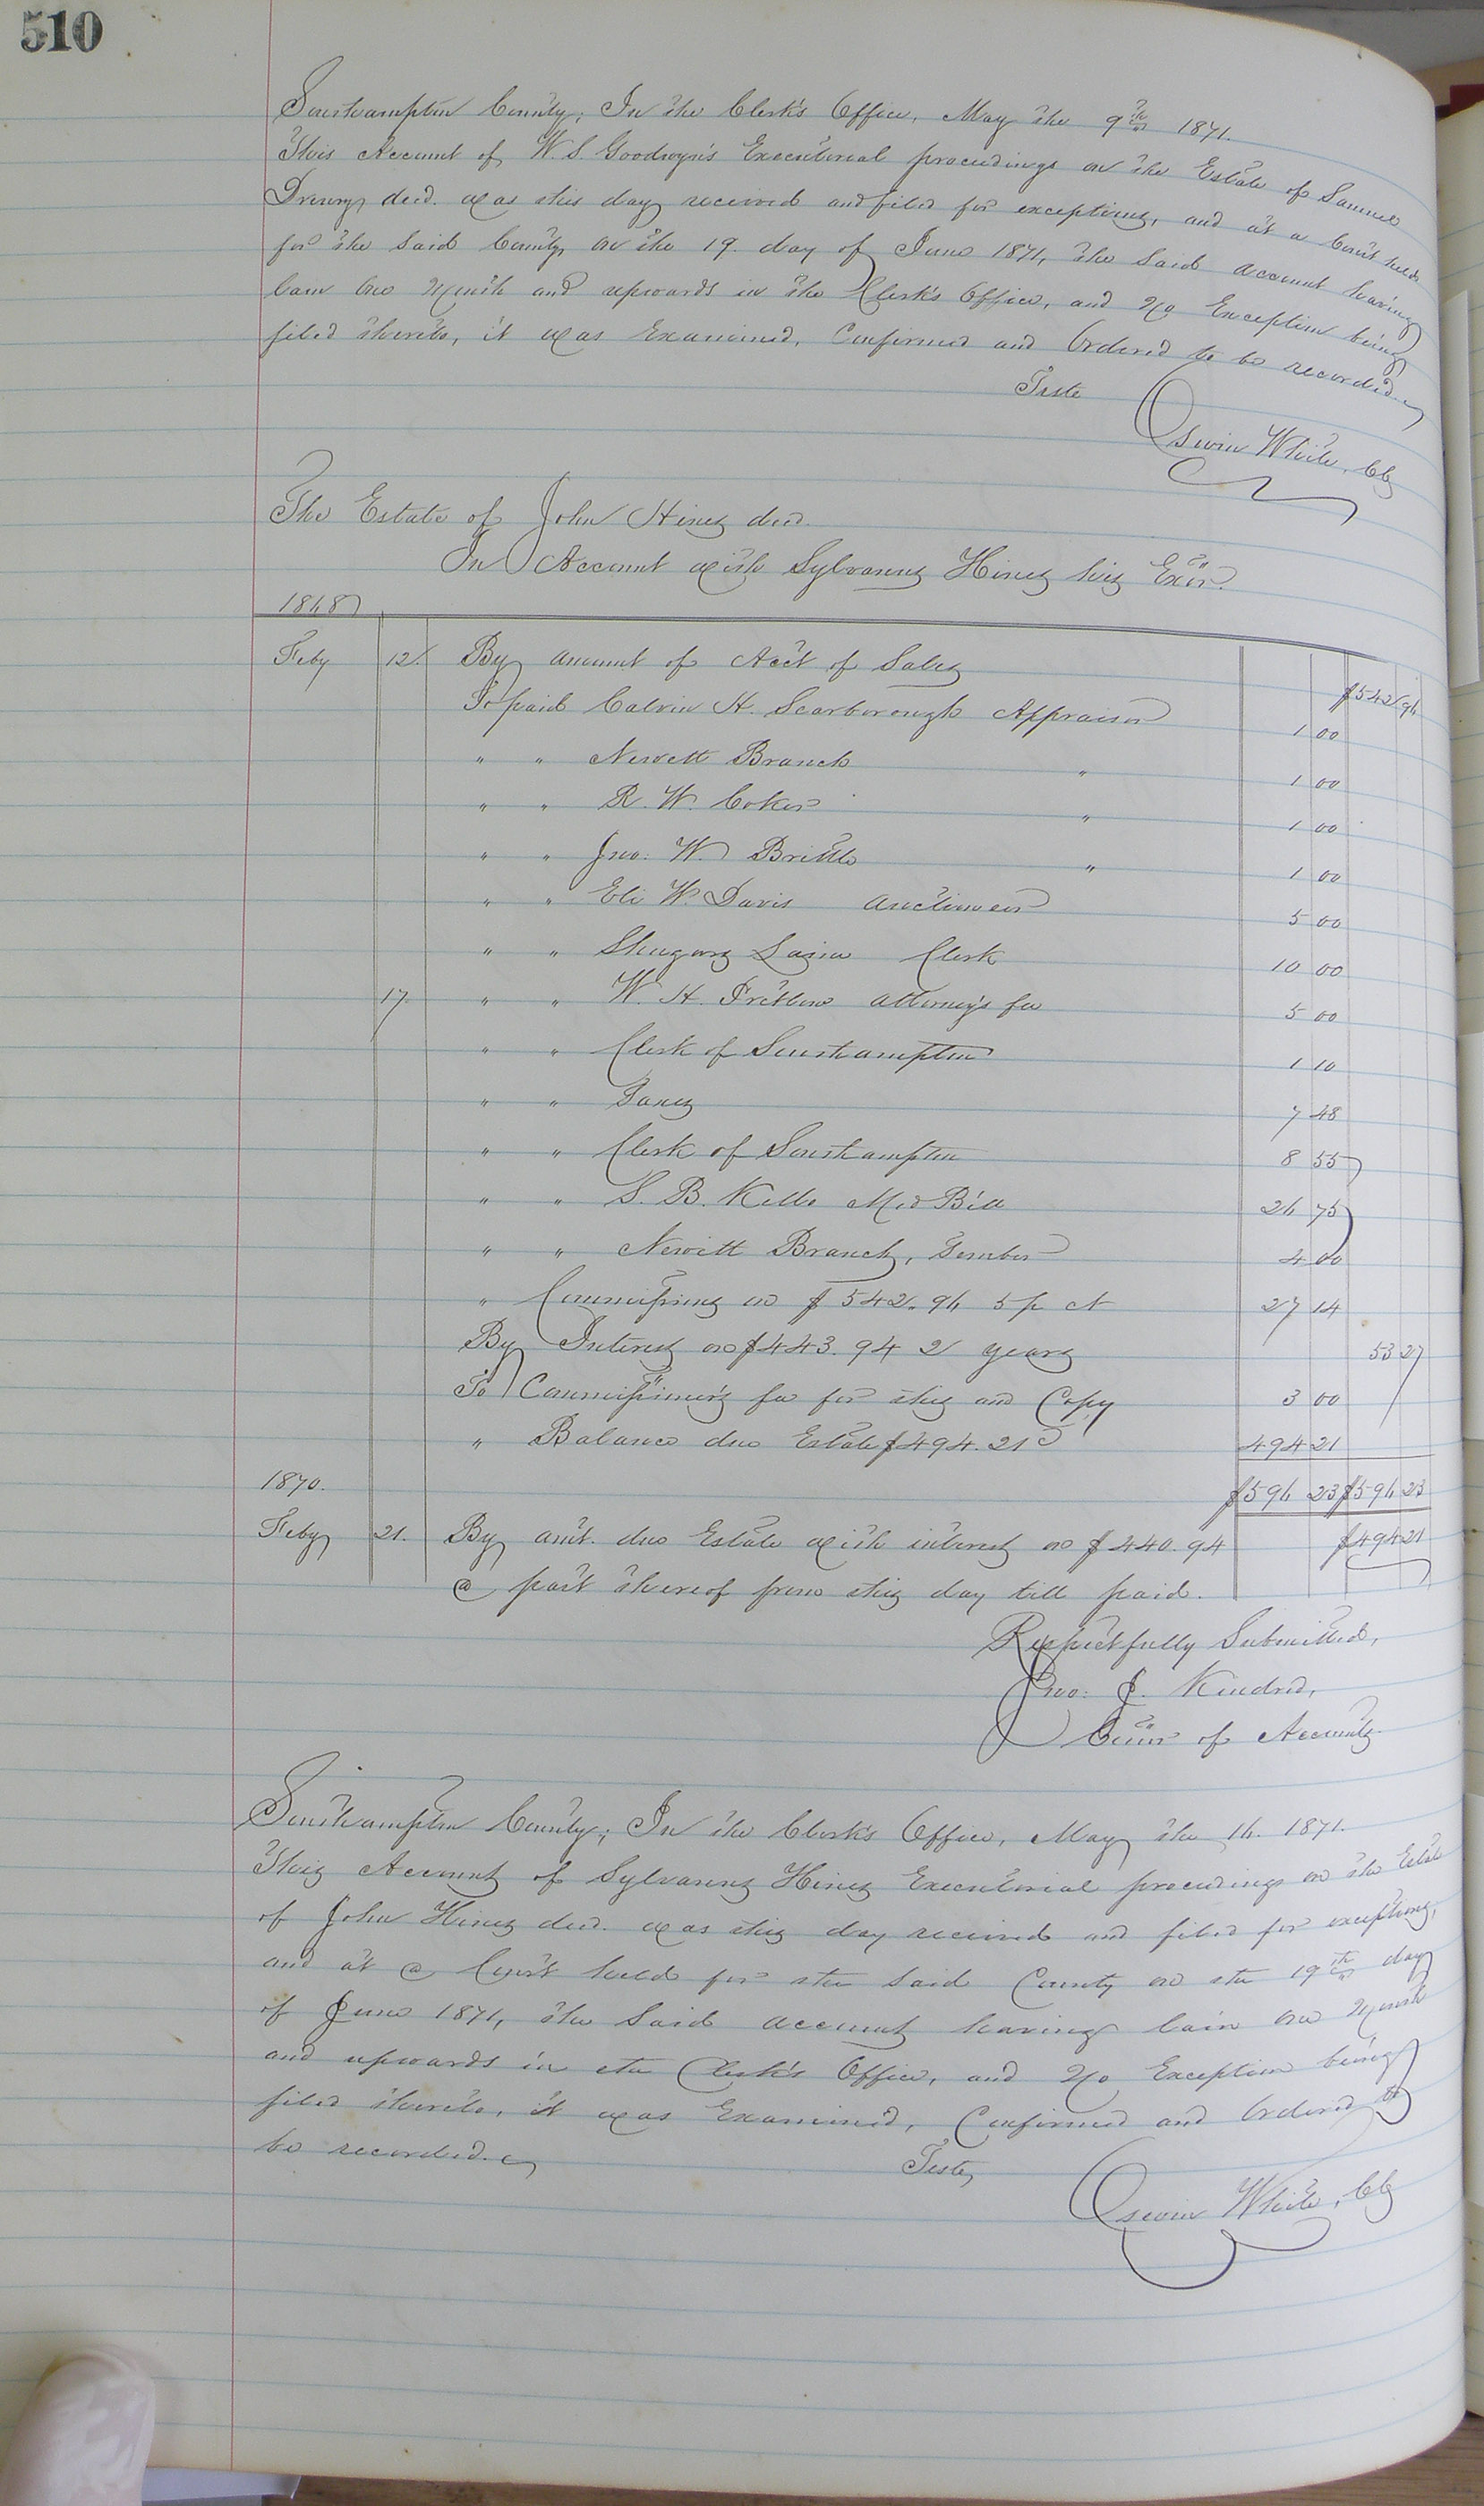 510
Southampton County; In the Clerk's Office, May the 9th 1871.
This Account of W. S. Goodwyn's Executorial proceedings on the Estate of Samuel
Drewry decd. was this day received and filed for exceptions, and at a Court held
for the said County on the 19 day of June 1871, the said account having
lain one Month and upwards in the Clerk's Office, and No Exception being
filed thereto, it was Examined, Confirmed and Ordered to be recorded.
Teste
Oswin White, Clk
The Estate of John Hines decd.
In Account with Sylvanus Hines his Exor.
1868
Feby 12. By amount of Acct of Sales $542 96
To paid Calvin H. Scarborough Appraiser 1 00
" " Newett Branch " 1 00
" " R. W. Coker " 1 00
" " Jno: W. Brittle " 1 00
" " Eli W. Davis Auctioneer 5 00
" " Clerk 10 00
17. " " W. H. Pretlow attorney's fee 5 00
" " Clerk of Southampton 1 10
" " Taxes 7 48
" " Clerk of Southampton 8 55
" " S. B. Kello Med Bill 26 75
" " Newitt Branch, 4 00
" Commissions on $542.96 5 p ct 27 14
By Interest on $443.94 2 years 53 27
To Commissioner's fee for this and Copy 3 00
" Balance due Estate $494.21 494 21
1870. $596 23 $596 23
Feby 21. By amt. due Estate with interest on $440.94 $494 21
a part thereof from this day till paid.
Respectfully Submitted,
Jno: J. Kindred,
Comr of Accounts
Southampton County; In the Clerk's Office, May the 16. 1871.
This Account of Sylvanus Hines Executorial proceedings on the Estate
of John Hines decd. was this day received and filed for exceptions,
and at a Court held for the said County on the 19th day
of June 1871, the said account having lain one Month
and upwards in the Clerk's Office, and No Exception being
filed thereto, it was Examined, Confirmed and Ordered to
be recorded.
Teste,
Oswin White, Clk